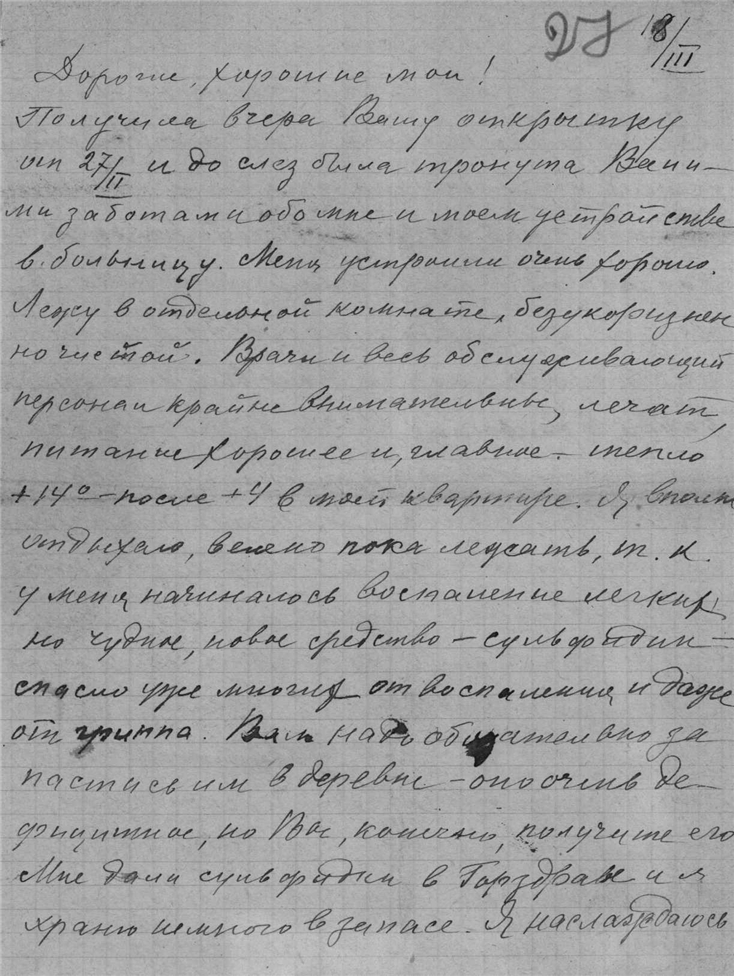 27 18/III
Дорогие, хорошие мои!
Получила вчера Вашу открытку
от 27/II и до слез была тронута Ваши-
ми заботами обо мне и моем устройстве
в больницу. Меня устроили очень хорошо.
Лежу в отдельной комнате, безукоризнен
но чистой. Врачи и весь обслуживающий
персонал крайне внимательны, лечат,
питание хорошее и, главное – тепло
+14° – после +4 в моей квартире. Я вполне
отдыхаю, велено пока лежать, т. к.
у меня начиналось воспаление легких,
но чудное, новое средство – сульфидин –
спасло уже многих от воспаления и даже
от гриппа. Вам надо обязательно за
пастись им в деревне – оно очень де-
фицитное, но Вы, конечно, получите его
Мне дали сульфидин в Горздраве и я
храню немного в запасе. Я наслаждаюсь